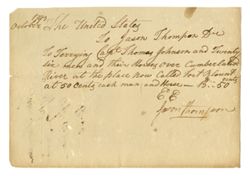 October
The United States
To Jason Thompson Dr
To Ferrying Capt. Thomas Johnson and Twenty
six men and their Horses over Cumberland
River at the place now Called fort Blount
at 50 Cents each man and Horse — 13..50
E.E.
Jason Thompson